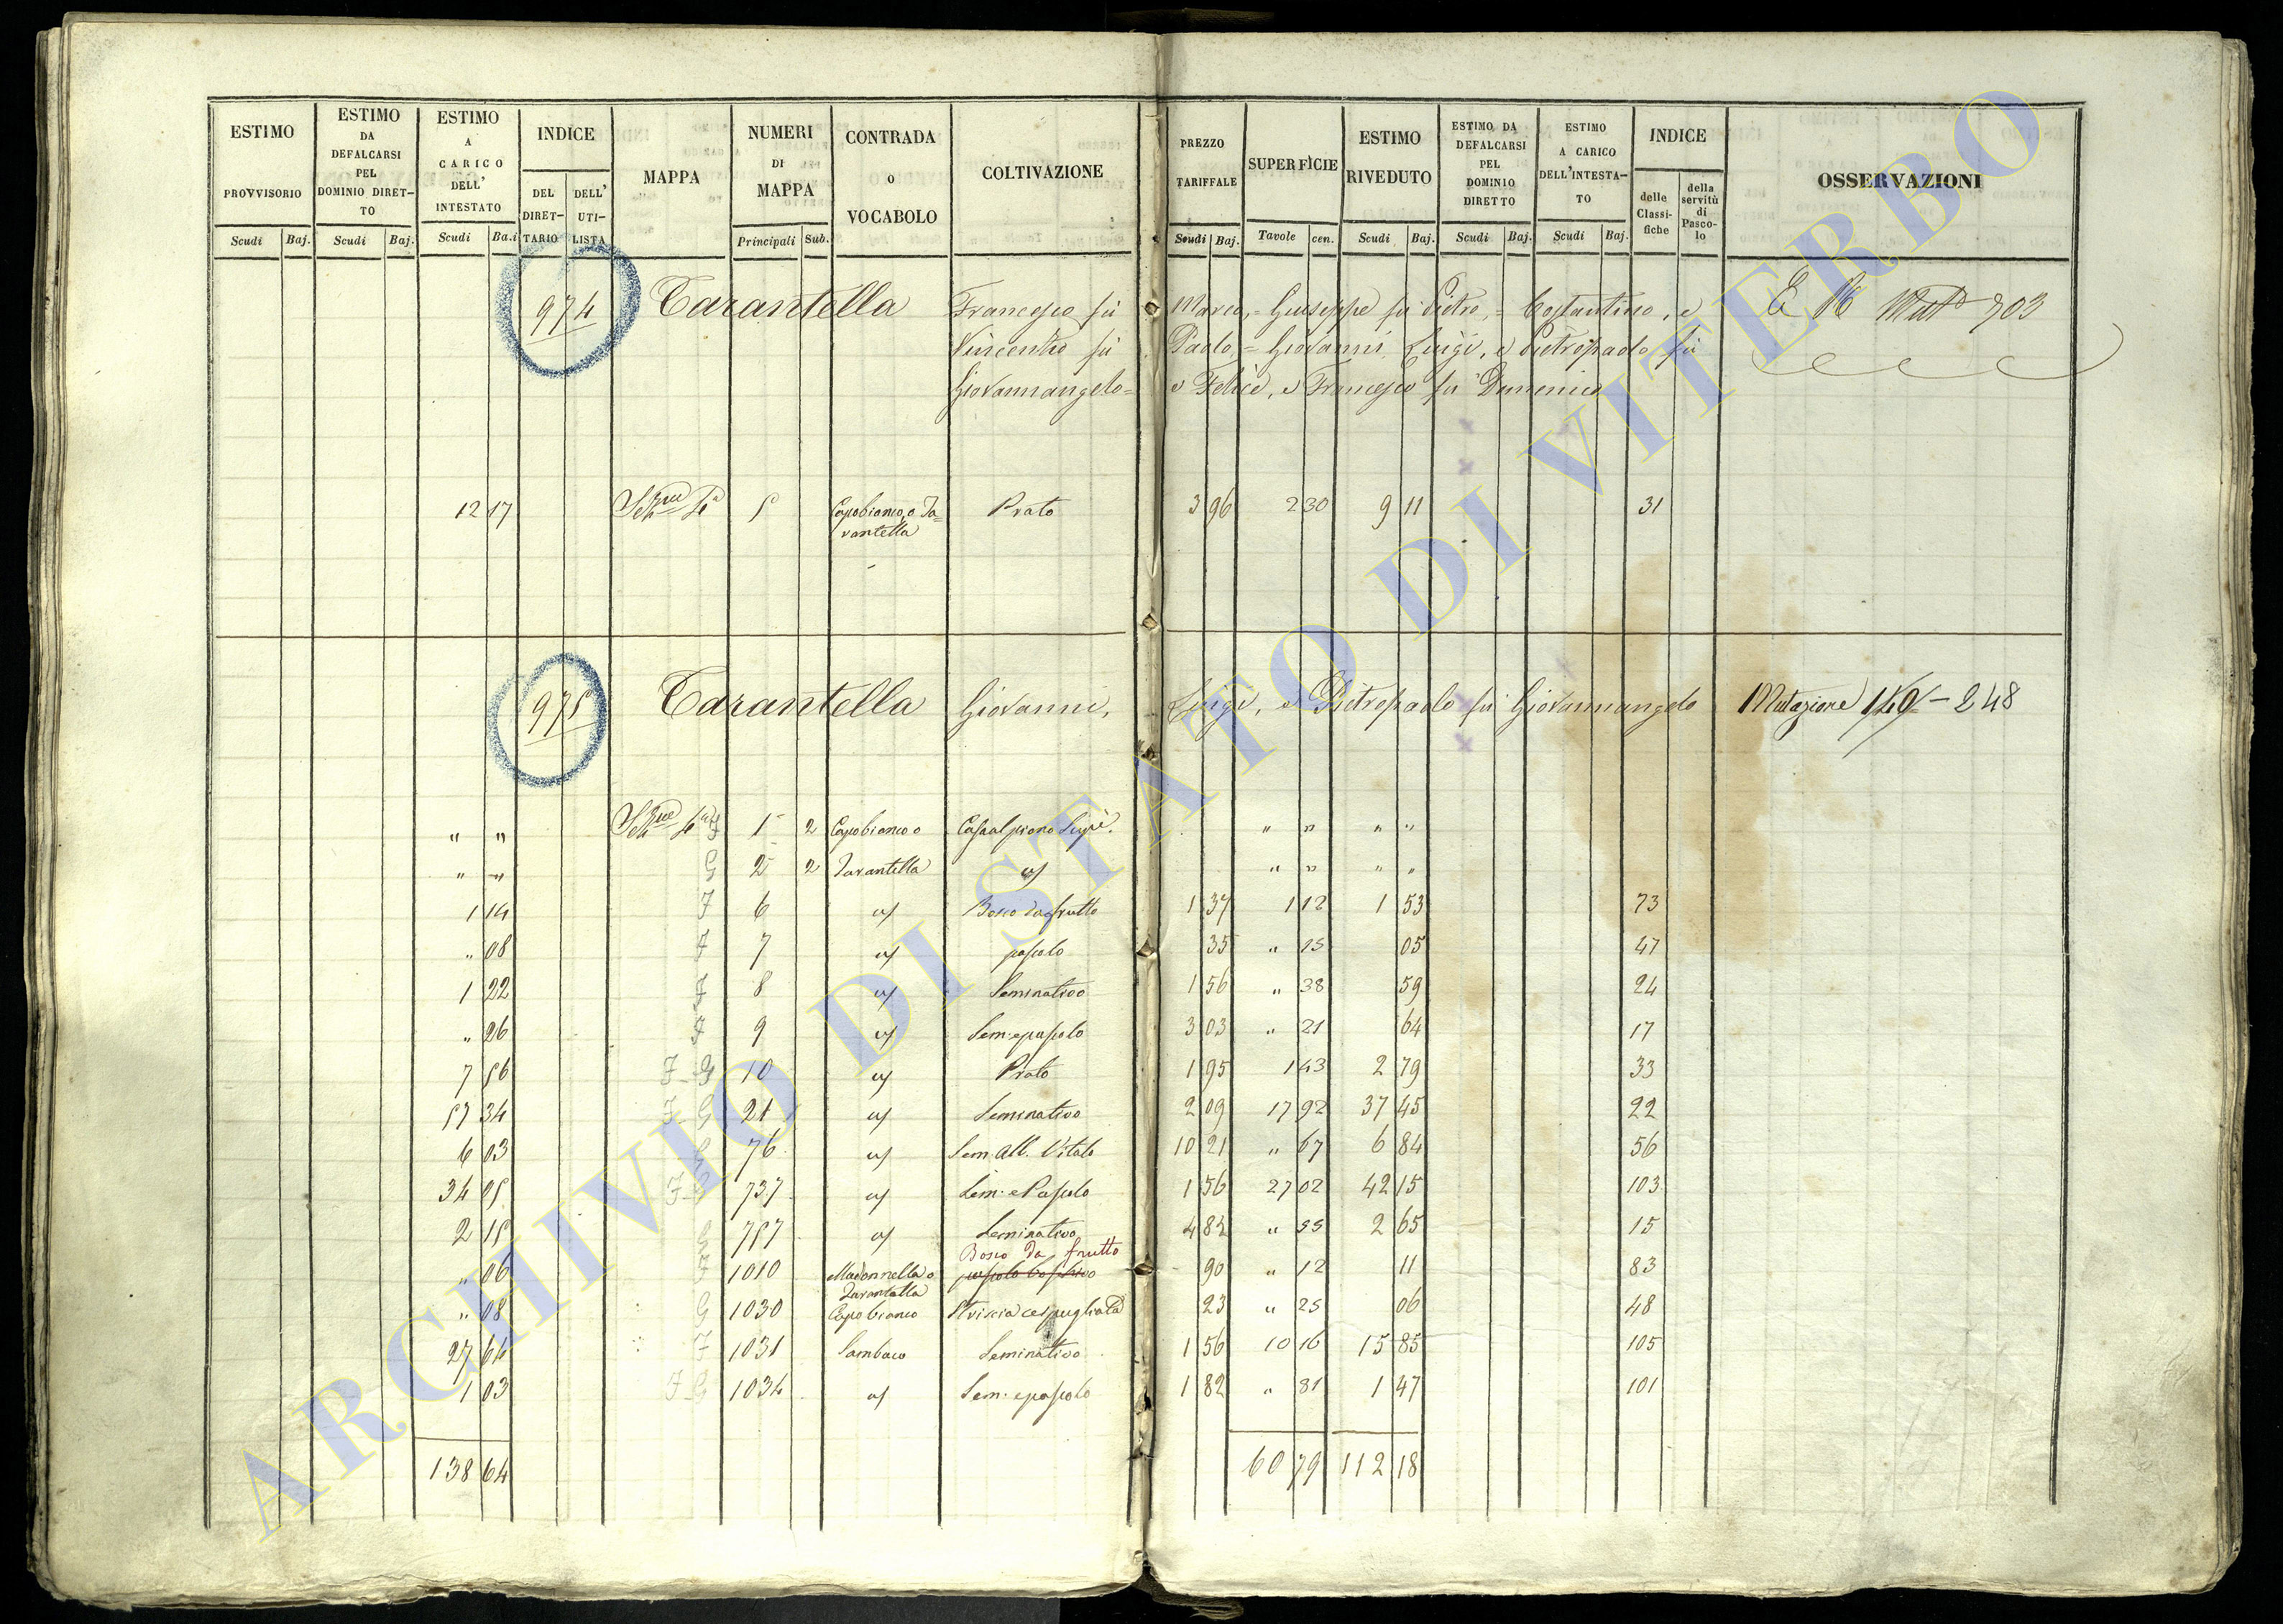 ESTIMO PROVVISORIO | ESTIMO DA DEFALCARSI PEL DOMINIO DIRETTO | ESTIMO A CARICO DELL' INTESTATO | INDICE DEL DIRETTARIO | DELL' UTILISTA | MAPPA | NUMERI DI MAPPA | CONTRADA O VOCABOLO | COLTIVAZIONE | PREZZO TARIFFALE | SUPERFICIE | ESTIMO RIVEDUTO | ESTIMO DA DEFALCARSI PEL DOMINIO DIRETTO | ESTIMO A CARICO DELL'INTESTATO | INDICE delle Classifiche | della servitù di Pascolo | OSSERVAZIONI
Scudi | Baj. | Scudi | Baj. | Scudi | Ba.i | Principali | Sub. | Scudi | Baj. | Tavole | cen. | Scudi | Baj. | Scudi | Baj. | Scudi | Baj.
974 Tarantella Francesco fù Marco, = Giuseppe fu Pietro, = Costantino, e
Vincenzo fù Paolo, = Giovanni, Luigi, e Pietropaolo fù
Giovannangelo = e Felice, e Francesco fu Domenico
703
12 17 5 Capobianco, o Tarantella Prato 3 96 2 30 9 11 31
975 Tarantella Giovanni, Luigi, e Pietropaolo fù Giovannangelo Mutazione 149 - 248
" " 1 2 Capobianco o " " " "
" " G 2 2 Tarantella " " " "
1 14 F 6 Bosco da frutto 1 37 1 12 1 53 73
" 08 F 7 pascolo 35 " 15 05 47
1 22 F 8 Seminativo 1 56 " 38 59 24
" 26 F 9 Sem: e pascolo 3 03 " 21 64 17
7 56 F-G 10 Prato 1 95 1 43 2 79 33
57 34 F-G 21 Seminativo 2 09 17 92 37 45 22
6 03 G 76 Sem. Alb. Vitato 10 21 " 67 6 84 56
34 25 F-G 737 Sem: e Pascolo 1 56 27 02 42 15 103
2 15 G 757 Seminativo 4 82 " 55 2 65 15
Bosco da frutto
" 06 F 1010 Madonnella o Tarantella pascolo boschivo 90 " 12 11 83
" 08 G 1030 Capobianco Striscia cespugliata 23 " 25 06 48
27 64 F 1031 Sambuco Seminativo 1 56 10 16 15 85 105
1 03 F-G 1034 Sem: e pascolo 1 82 " 81 1 47 101
138 64 60 79 112 18
ARCHIVIO DI STATO DI VITERBO